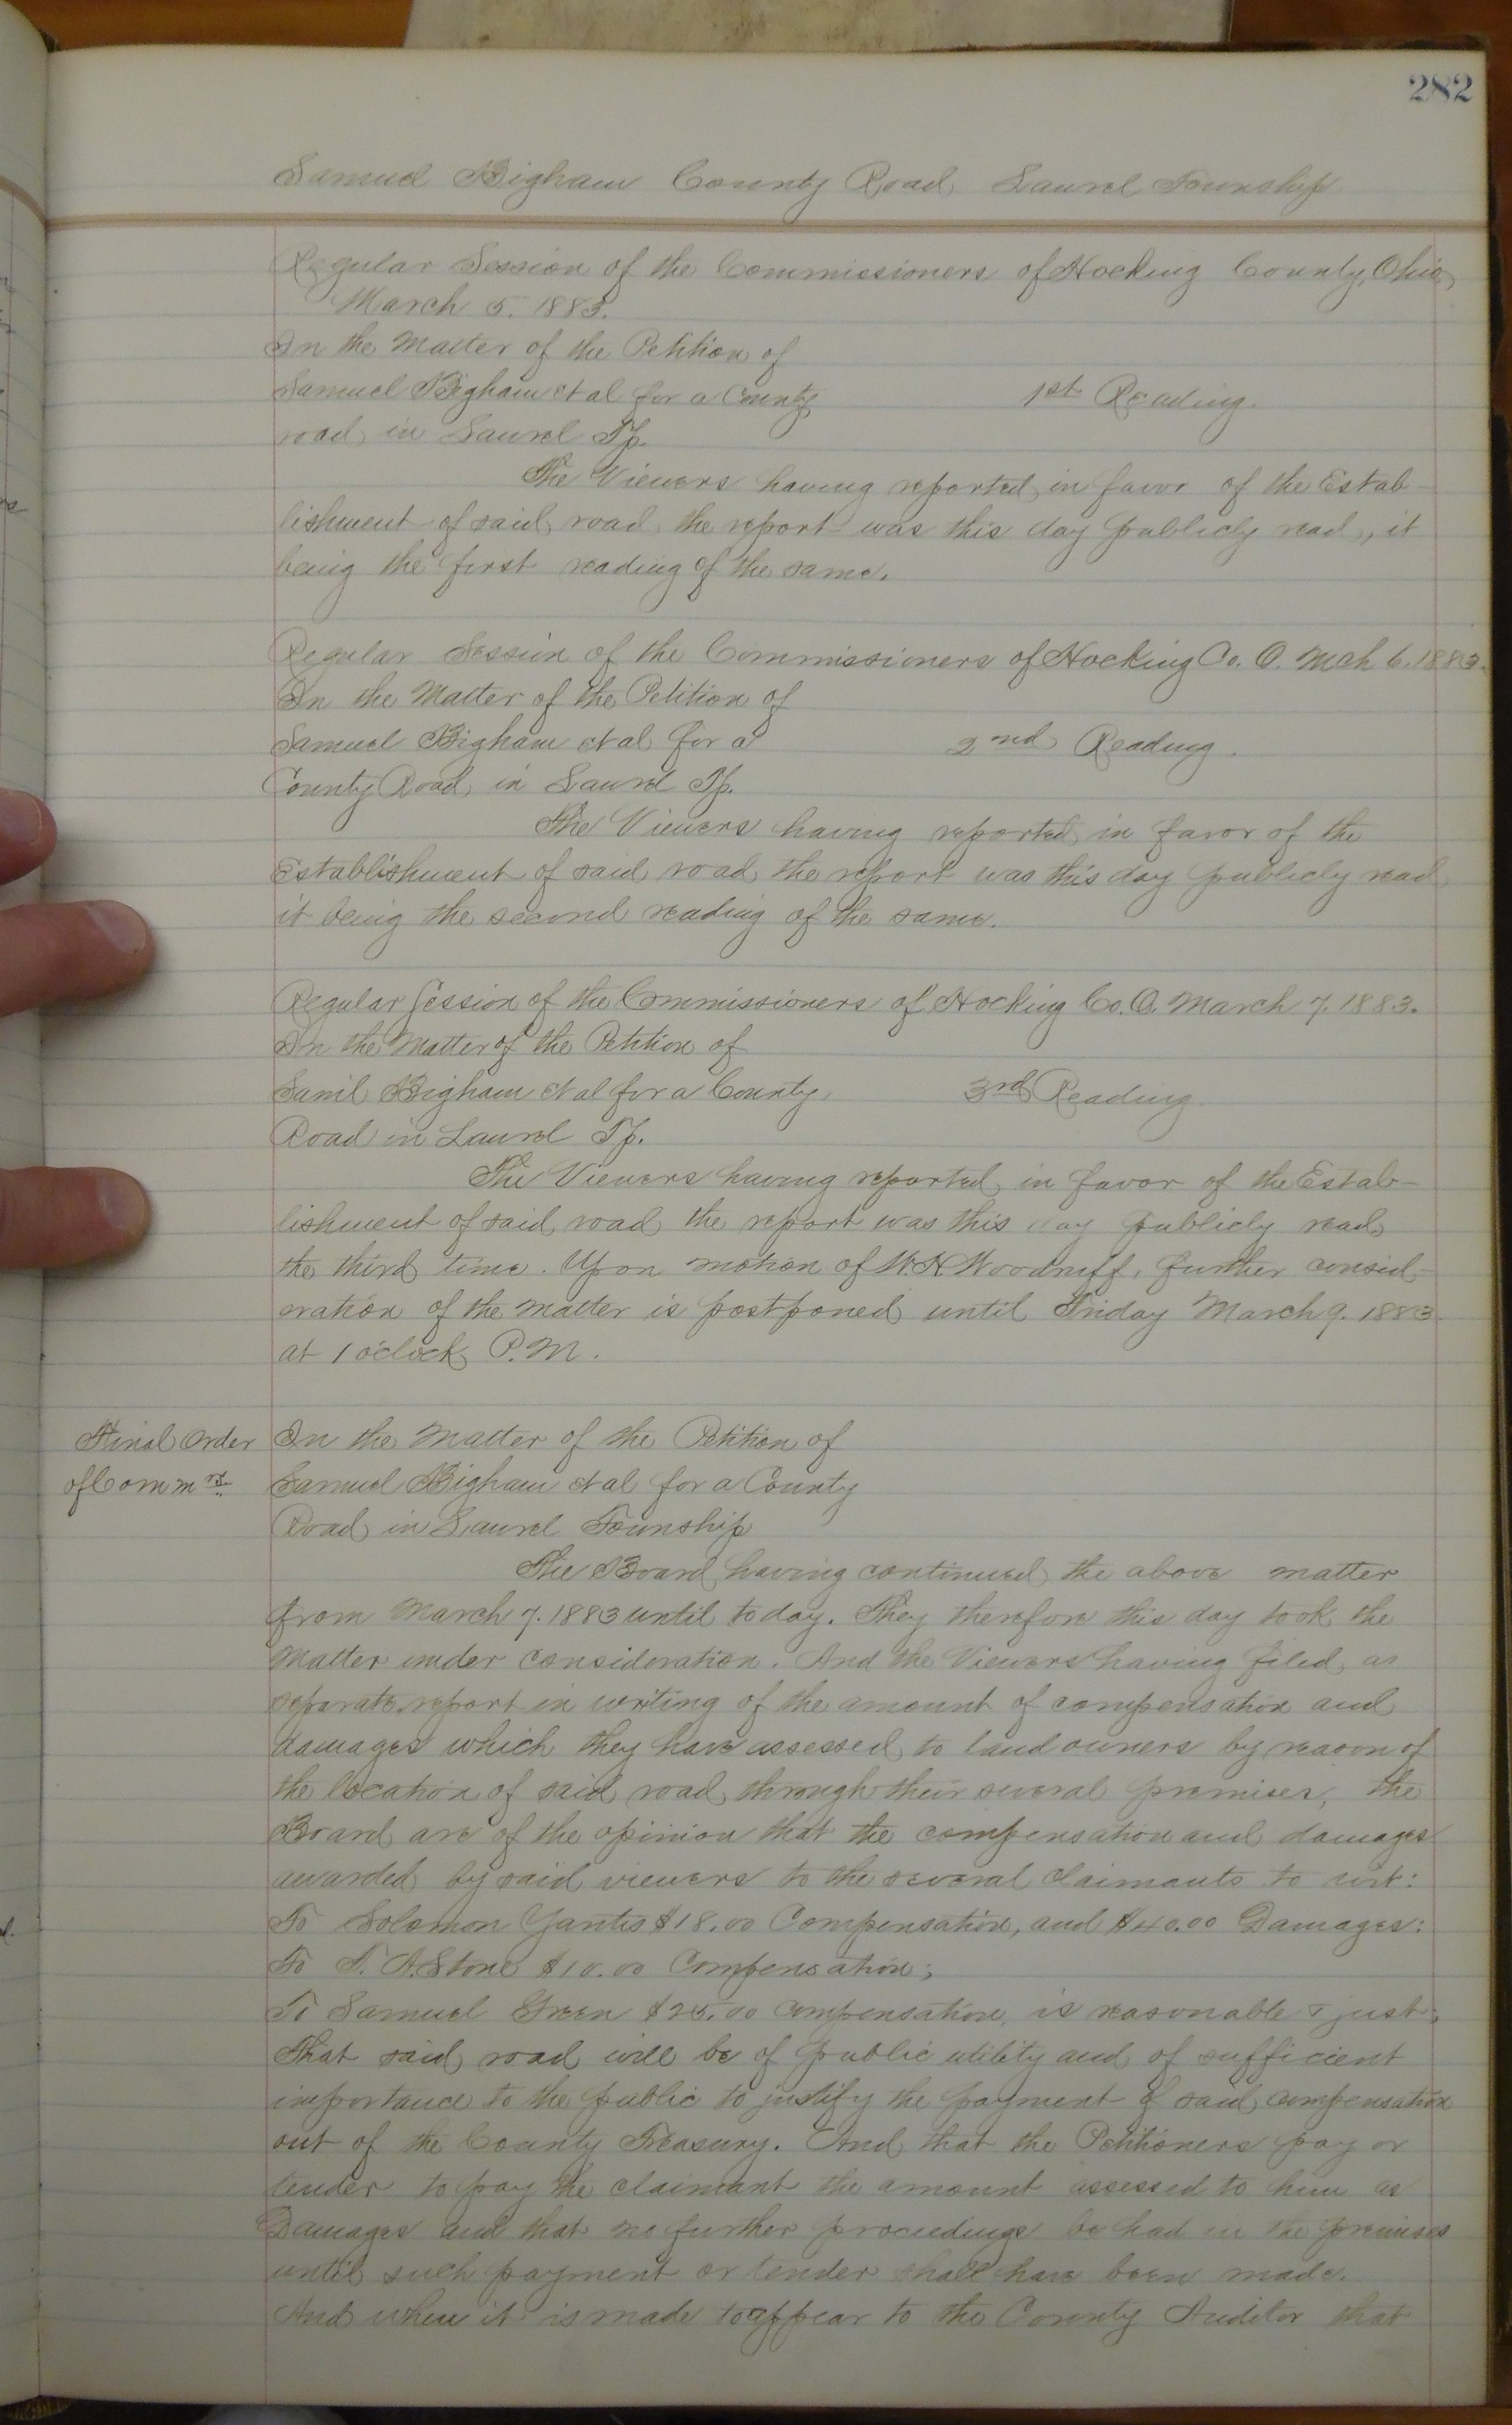 282
Samuel Bigham County Road Laurel Township
Regular Session of the Commissioners of Hocking County, Ohio,
March 5. 1883.
In the Matter of the Petition of
Samuel Bigham et al for a County
1st Reading.
road in Laurel Tp.
The Viewers having reported in favor of the Estab-
lishment of said road the report was this day publicly read, it
being the first reading of the same.
Regular Session of the Commissioners of Hocking Co. O. Mch 6. 1883.
In the Matter of the Petition of
Samuel Bigham et al for a
2nd Reading.
County Road in Laurel Tp.
The Viewers having reported in favor of the
Establishment of said road the report was this day publicly read
it being the second reading of the same.
Regular Session of the Commissioners of Hocking Co. O. March 7. 1883.
In the Matter of the Petition of
Saml Bigham et al for a County
3rd Reading
Road in Laurel Tp.
The Viewers having reported in favor of the Estab-
lishment of said road the report was this day publicly read
the third time. Upon motion of W. H. Woodruff, further consid-
eration of the matter is postponed until Friday March 9. 1883
at 1 o'clock P.M.
Final Order
of Commrs.
In the Matter of the Petition of
Samuel Bigham et al for a County
Road in Laurel Township
The Board having continued the above matter
from March 7. 1883 until today. They therefore this day took the
Matter under consideration. And the Viewers having filed a
separate report in writing of the amount of compensation and
damages which they have assessed to land owners by reason of
the location of said road through their several premises, the
Board are of the opinion that the compensation and damages
awarded by said viewers to the several Claimants to wit:
To Solomon Yantis $18.00 Compensation, and $40.00 Damages:
To T. A. Stone $10.00 Compensation;
To Samuel Green $25.00 Compensation, is reasonable & just;
That said road will be of public utility and of sufficient
importance to the public to justify the payment of said compensation
out of the County Treasury. And that the Petitioners pay or
tender to pay the claimant the amount assessed to him as
Damages and that no further proceedings be had in the premises
until such payment or tender shall have been made.
And when it is made to appear to the County Auditor that